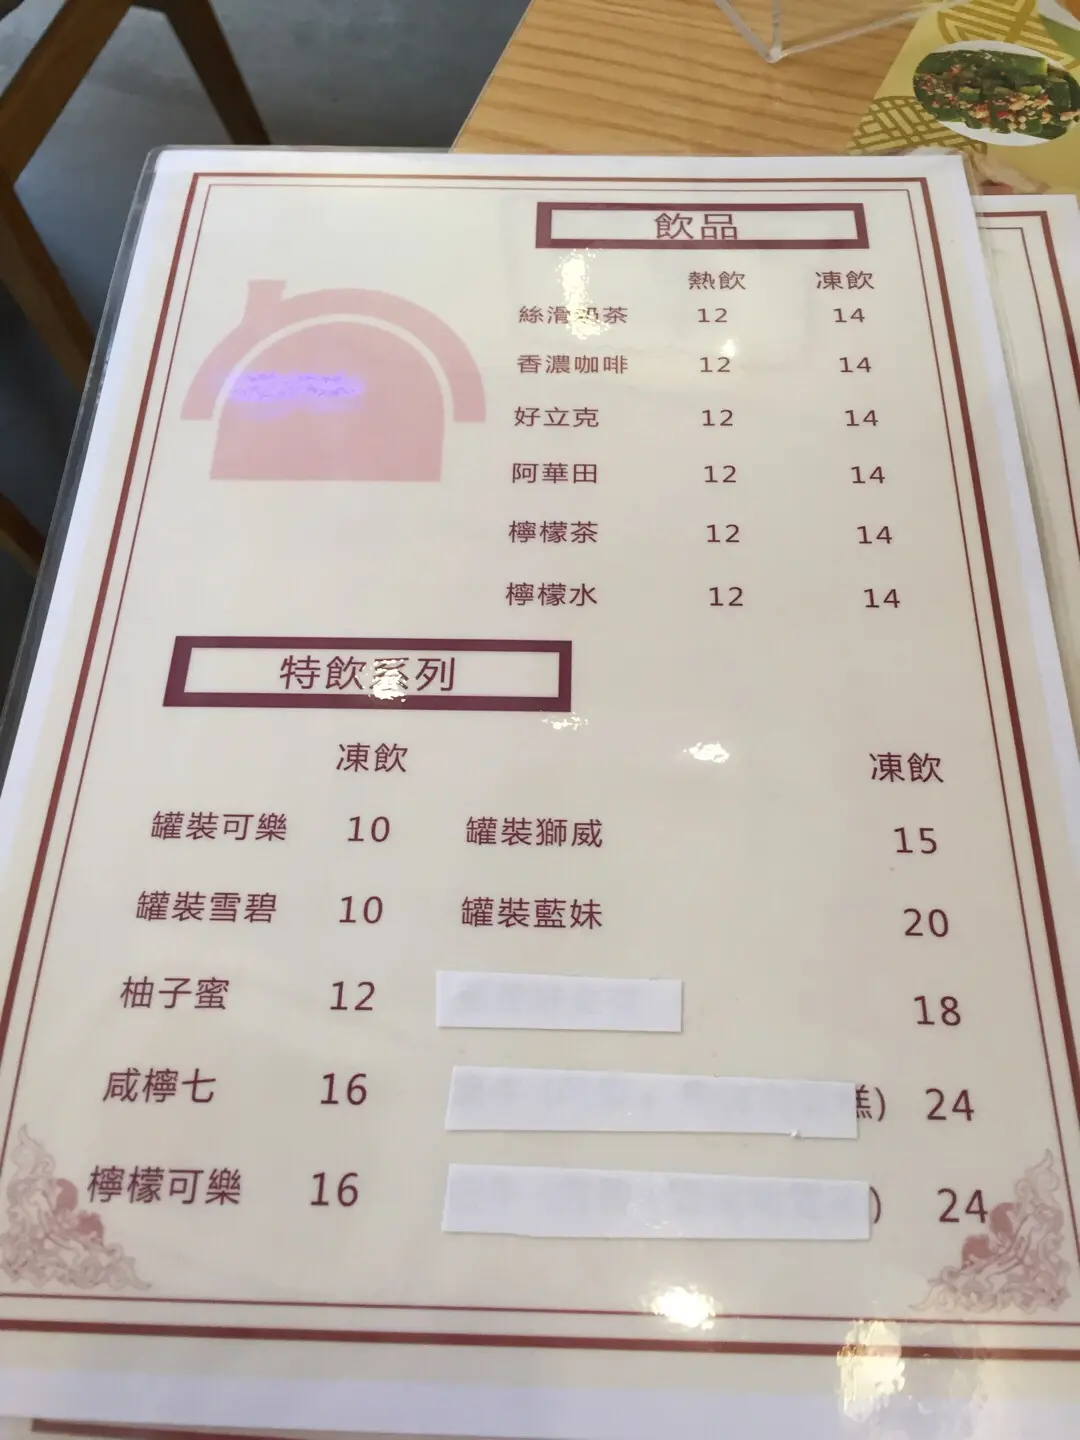 飲品
熱飲 凍飲
絲滑奶茶 12 14
香濃咖啡 12 14
好立克 12 14
阿華田 12 14
檸檬茶 12 14
檸檬水 12 14
特飲系列
凍飲 凍飲
罐裝可樂 10 罐裝獅威 15
罐裝雪碧 10 罐裝藍妹 20
柚子蜜 12 18
咸檸七 16 糕) 24
檸檬可樂 16 ) 24